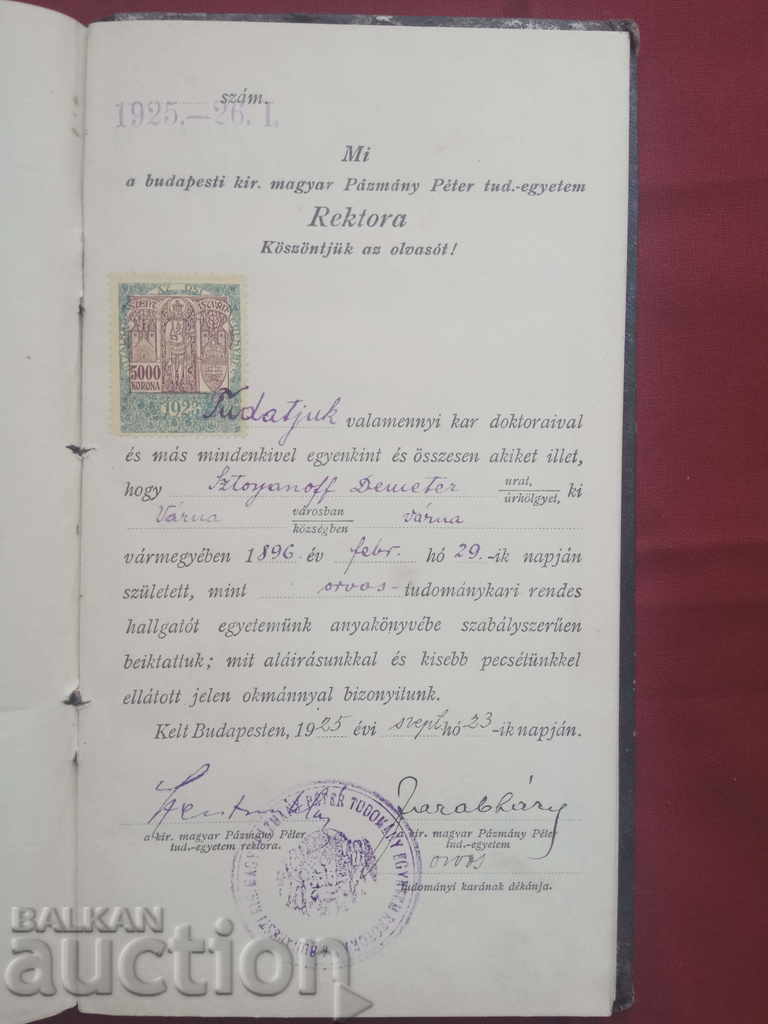 szám.
1925.—26. I.
Mi
a budapesti kir. magyar Pázmány Péter tud.-egyetem
Rektora
Köszöntjük az olvasót!
5000
KORONA
1923
Tudatjuk valamennyi kar doktoraival
és más mindenkivel egyenkint és összesen akiket illet,
hogy Sztoyanoff Demeter urat, úrhölgyet, ki
Várna városban községben Várna
vármegyében 1896 év febr. hó 29.-ik napján
született, mint orvos-tudománykari rendes
hallgatót egyetemünk anyakönyvébe szabályszerűen
beiktattuk; mit aláirásunkkal és kisebb pecsétünkkel
ellátott jelen okmánnyal bizonyitunk.
Kelt Budapesten, 1925 évi szept hó 23-ik napján.
a kir. magyar Pázmány Péter
tud.-egyetem rektora.
kir. magyar Pázmány Péter
tud.-egyetem
orvos
tudományi karának dékánja.
PÁZMÁNY PÉTER TUDOMÁNY EGYETEM
BALKAN
auction